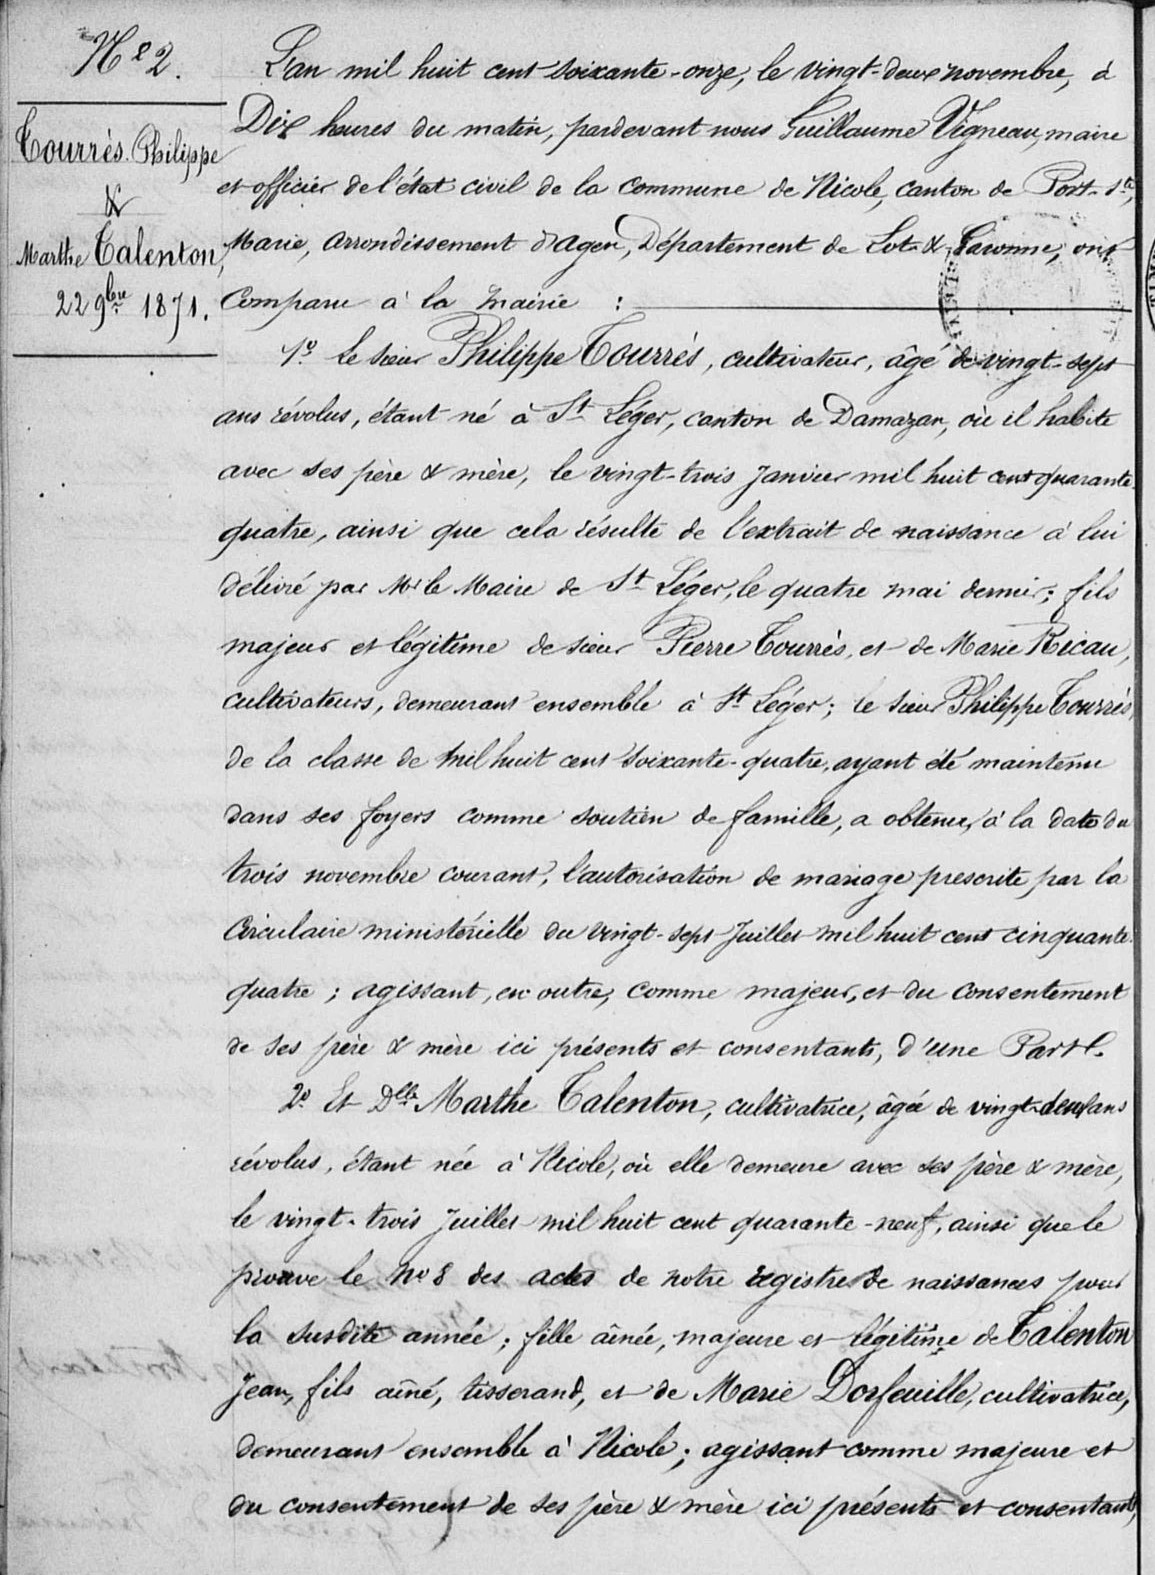 N° 2.
Tourrès Philippe
&
Marthe Talenton,
22 9bre 1871.
L'an mil huit cent soixante-onze, le vingt-deux novembre, à
Dix heures du matin, pardevant nous Guillaume Vigneau, maire
et officier de l'état civil de la commune de Nicole, canton de Port-Ste
Marie, arrondissement d'Agen, Département de Lot & Garonne, ont
Comparu à la mairie :
1° Le sieur Philippe Tourrès, cultivateur, âgé de vingt-sept
ans révolus, étant né à St Léger, canton de Damazan, où il habite
avec ses père & mère, le vingt-trois Janvier mil huit cent quarante-
quatre, ainsi que cela résulte de l'extrait de naissance à lui
délivré par Mr le Maire de St Léger, le quatre mai dernier; fils
majeur et légitime de sieur Pierre Tourrès, et de Marie Ricau,
cultivateurs, demeurant ensemble à St Léger; le sieur Philippe Tourrès,
de la classe de mil huit cent soixante-quatre, ayant été maintenu
dans ses foyers comme soutien de famille, a obtenu, à la date du
trois novembre courant, l'autorisation de mariage prescrite par la
Circulaire ministérielle du vingt-sept Juillet mil huit cent cinquante-
quatre ; agissant, en outre, comme majeur, et du consentement
de ses père & mère ici présents et consentants, d'une Part.
2° Et Dlle Marthe Talenton, cultivatrice, âgée de vingt-deux ans
révolus, étant née à Nicole, où elle demeure avec ses père & mère,
le vingt-trois Juillet mil huit cent quarante-neuf, ainsi que le
prouve le no 8 des actes de notre registre de naissances pour
la susdite année ; fille aînée, majeure et légitime de Talenton
Jean, fils aîné, tisserand, et de Marie Dorfeuille, cultivatrice,
demeurant ensemble à Nicole ; agissant comme majeure et
du consentement de ses père & mère ici présents et consentants,